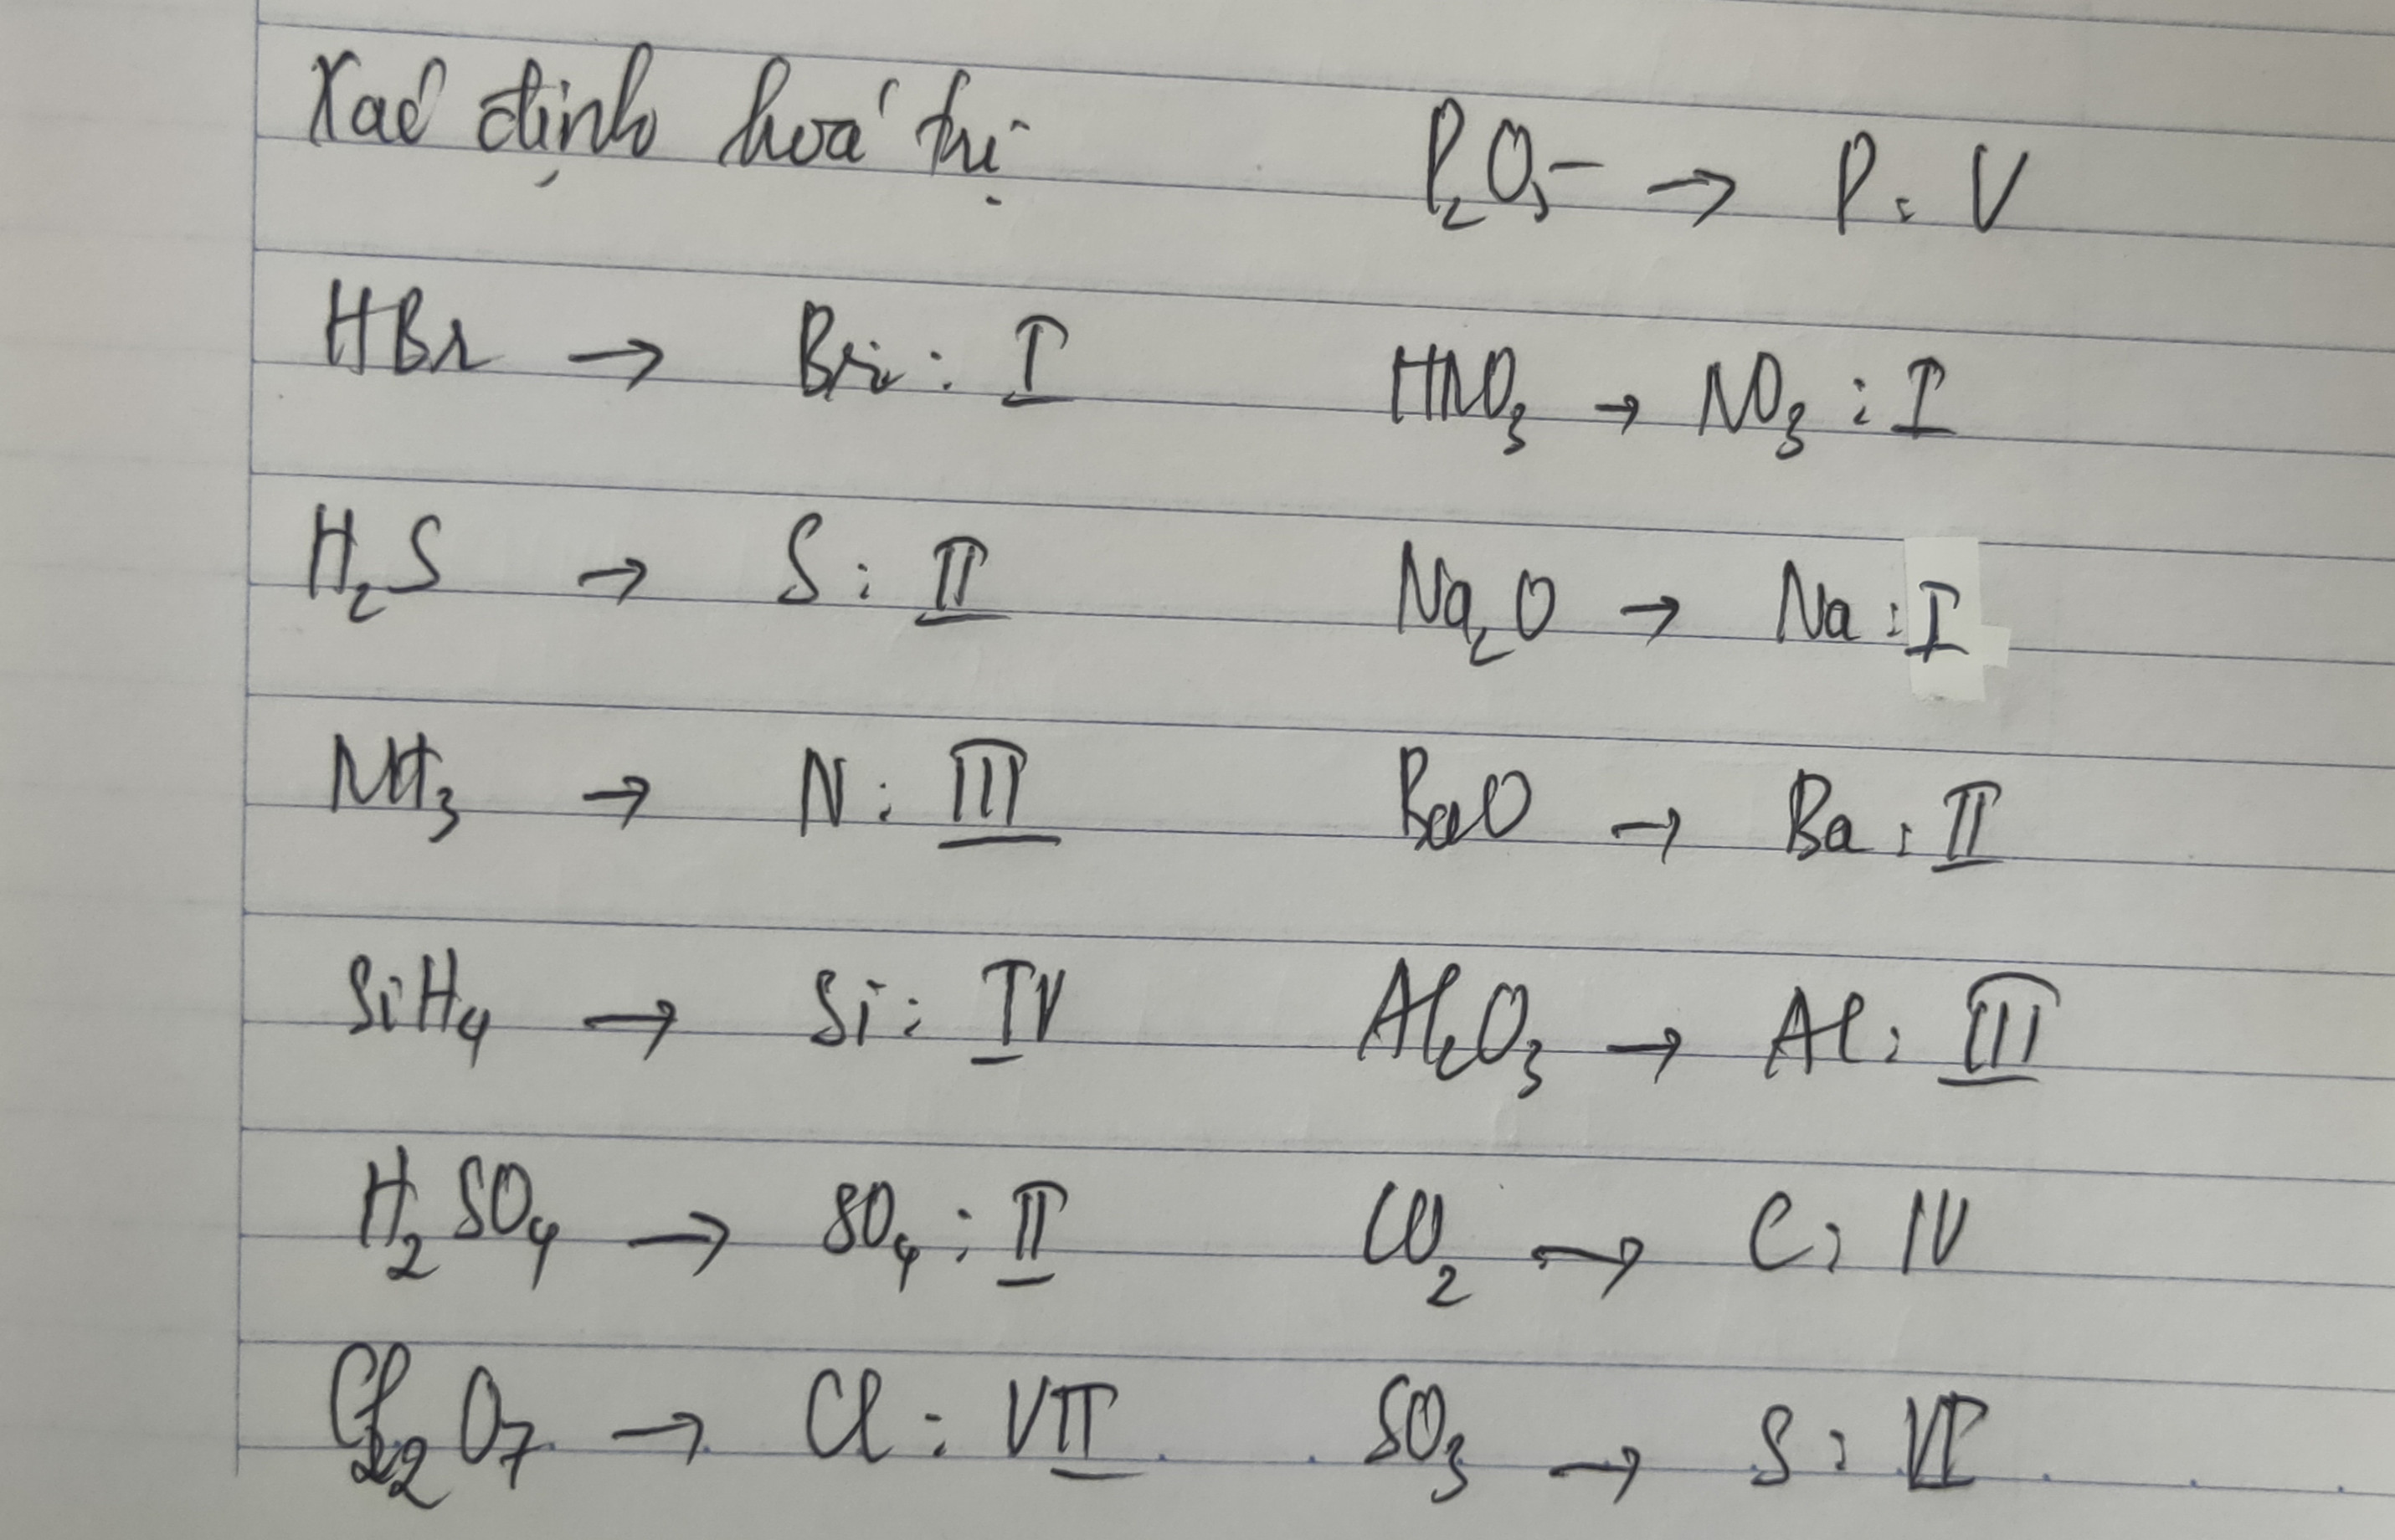 Xác định hoá trị
HBr → Br : I
H₂S → S : II
NH₃ → N : III
SiH₄ → Si : IV
H₂SO₄ → SO₄ : II
Cl₂O₇ → Cl : VII
P₂O₅ → P : V
HNO₃ → NO₃ : I
Na₂O → Na : I
BaO → Ba : II
Al₂O₃ → Al : III
CO₂ → C : IV
SO₃ → S : VI